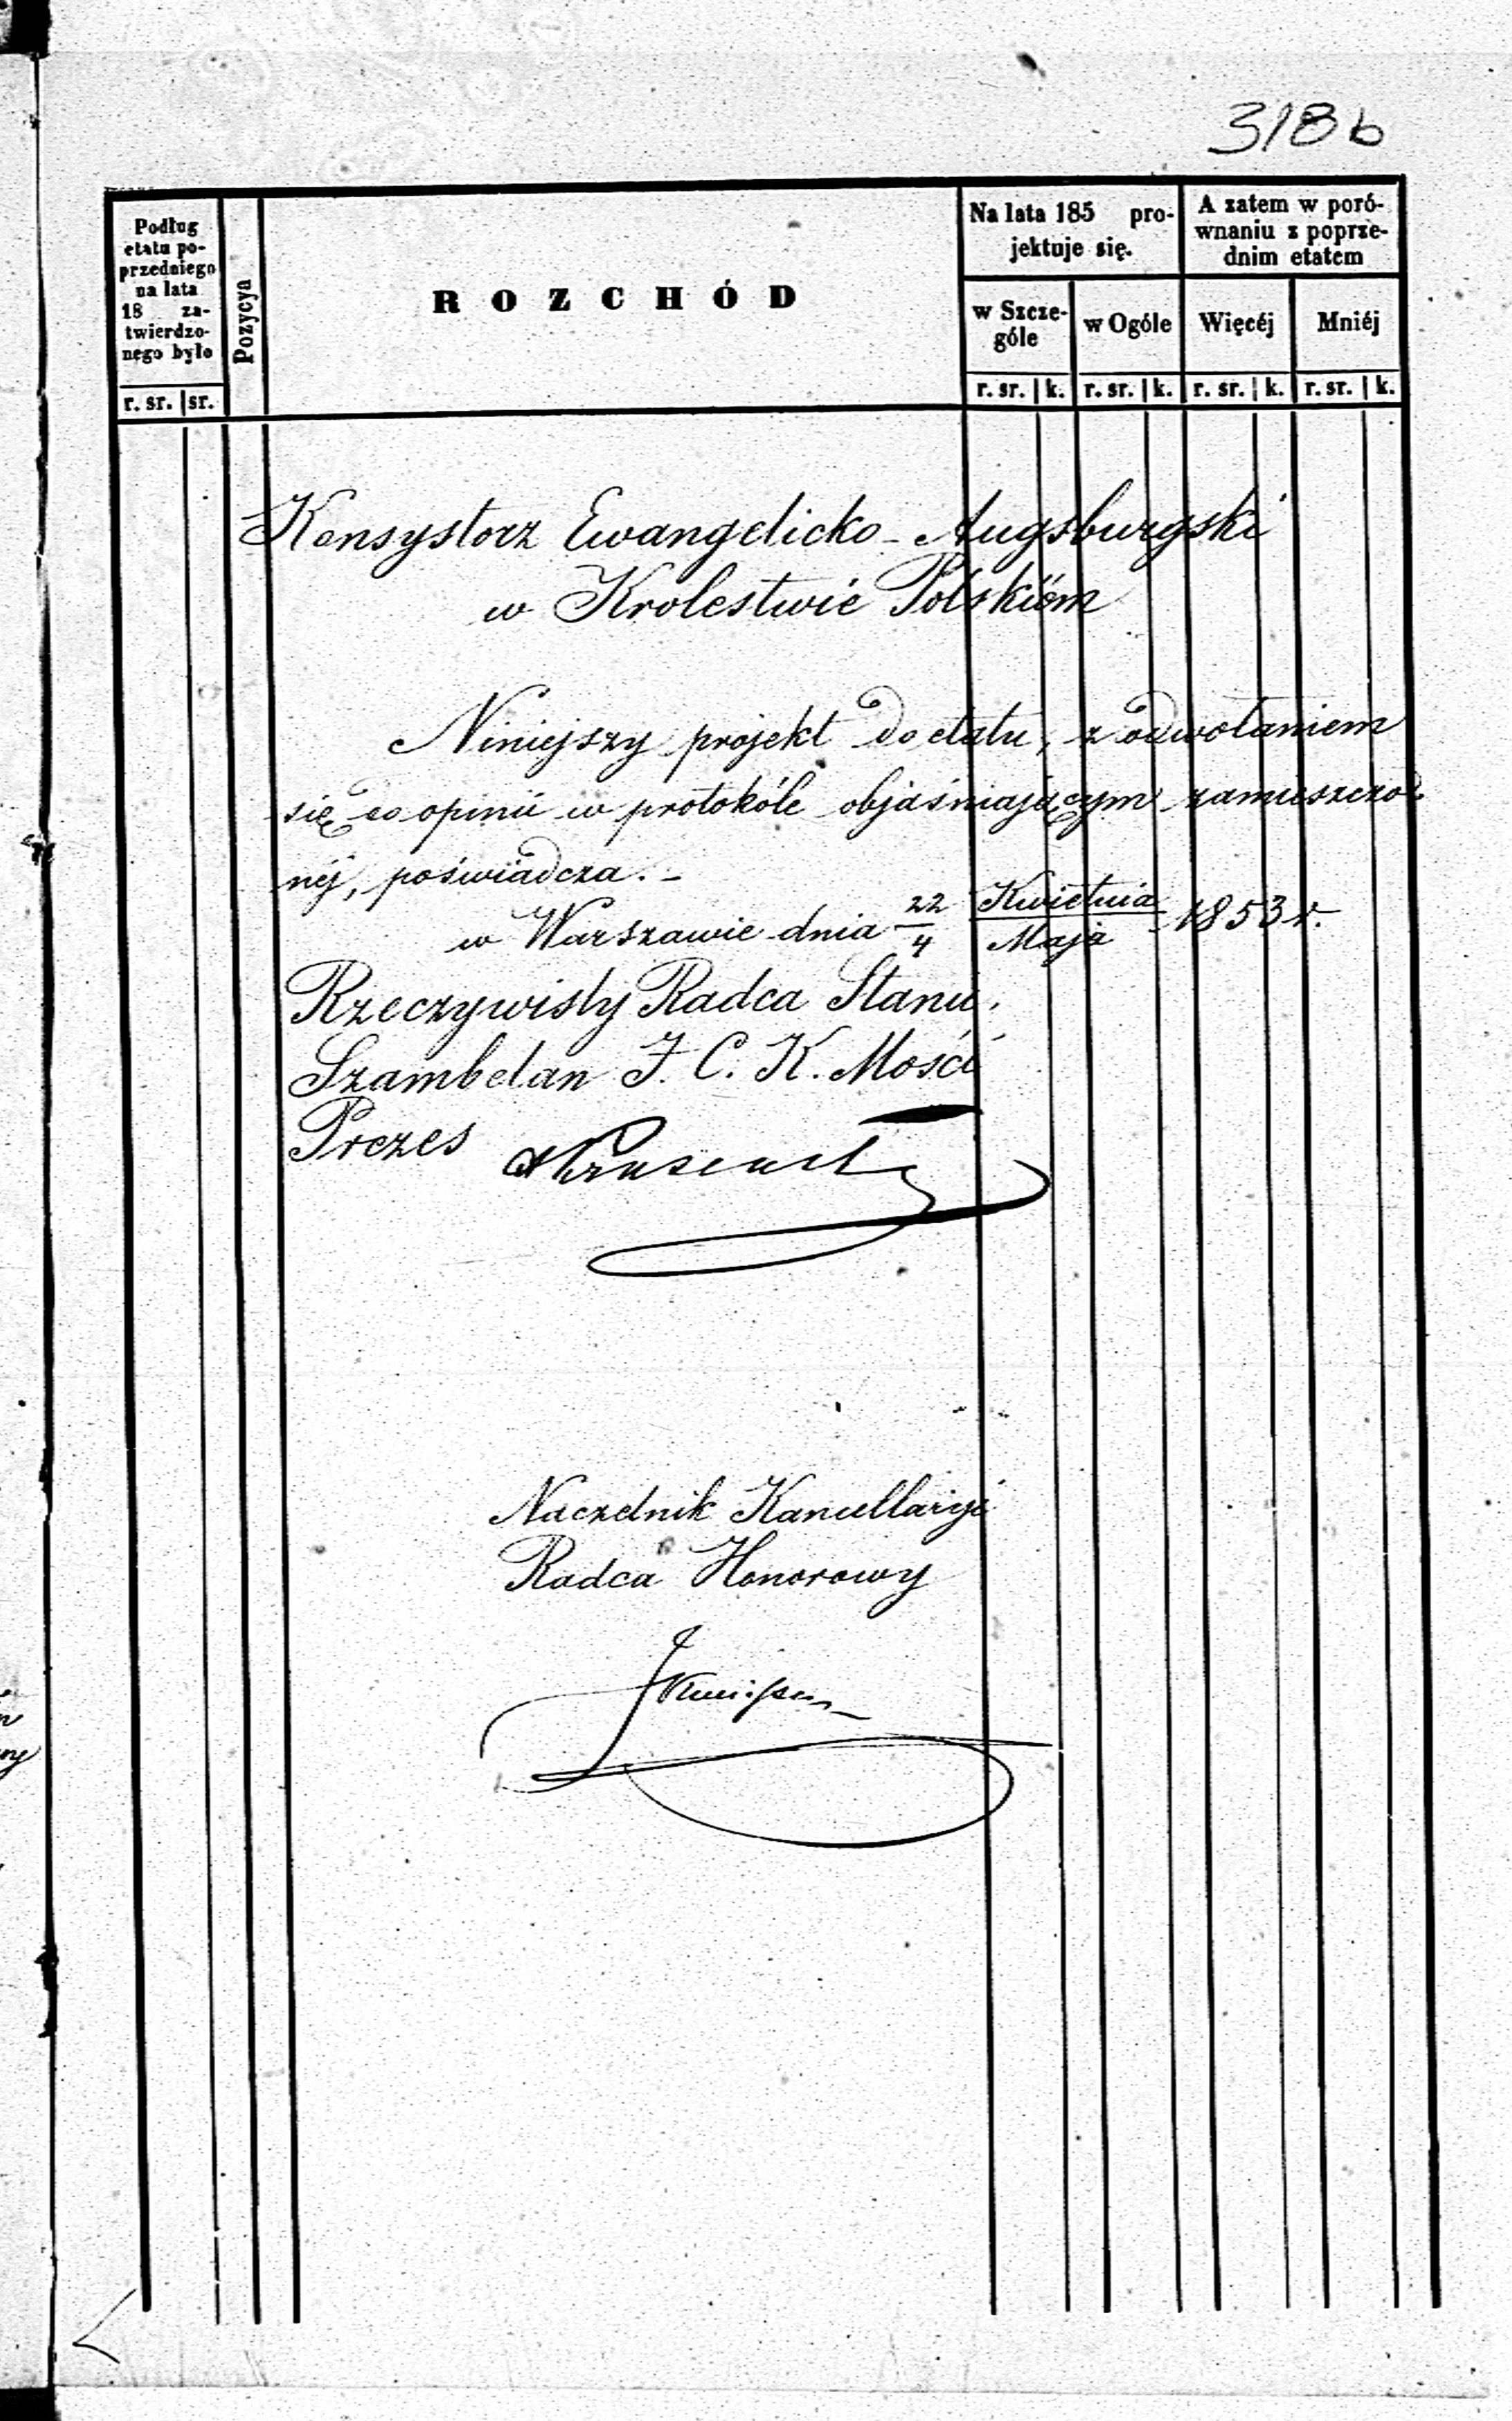 318 b
Podług
etatu po-
przedniego
na lata
18 za-
twierdzo-
nego było
r. sr. sr.
Pozycya
ROZCHÓD
Na lata 185 pro-
jektuje się.
w Szcze-
góle
w Ogóle
r. sr. k. r. sr. k.
A zatem w poró-
wnaniu z poprze-
dnim etatem
Więcéj Mniéj
r. sr. k. r. sr. k.
Konsystorz Ewangelicko-Augsburgski
w Krolestwie Polskiém
Niniejszy projekt do etatu, z odwołaniem
się do opinii w protokóle objaśniającym zamieszczo-
néj, poświadcza.-
w Warszawie dnia 22/4 Kwietnia/Maja 1853 r.
Rzeczywisty Radca Stanu,
Szambelan J. C. K. Mości
Prezes
Naczelnik Kancellaryi
Radca Honorowy